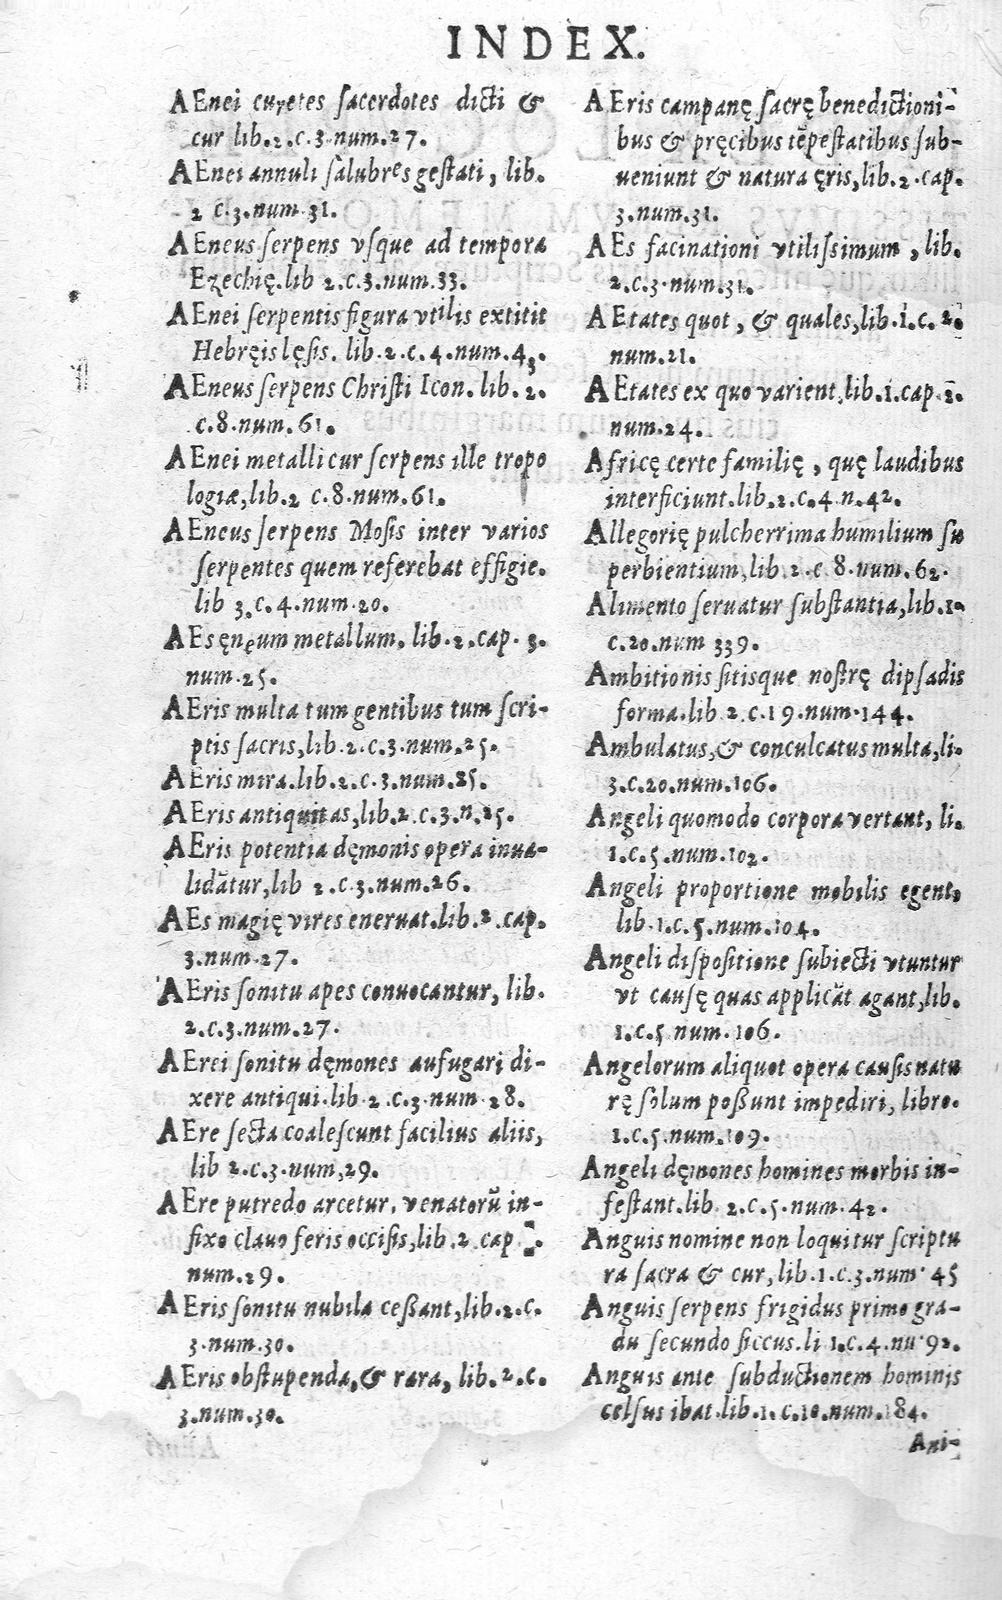 INDEX.
AEnei curetes ſacerdotes dicti &
cur lib.2.c.3.num.27.
AEnei annuli ſalubres geſtati, lib.
2 c.3.num.31.
AEneus ſerpens vſque ad tempora
Ezechię.lib 2.c.3.num.33.
AEnei ſerpentis figura vtilis extitit
Hebręis lęſis. lib.2.c.4.num.43.
AEneus ſerpens Chriſti Icon. lib.2.
c.8.num.61.
AEnei metalli cur ſerpens ille tropo
logiæ,lib.2 c.8.num.61.
AEneus ſerpens Moſis inter varios
ſerpentes quem referebat effigie.
lib 3.c.4.num.20.
AEs ęneum metallum, lib.2.cap.3.
num.25.
AEris multa tum gentibus tum ſcri-
ptis ſacris,lib.2.c.3.num.25.
AEris mira.lib.2.c.3.num.25.
AEris antiquitas,lib.2.c.3.n.25.
AEris potentia dęmonis opera inua-
lidātur,lib 2.c.3.num.26.
AEs magię vires eneruat.lib.2.cap.
3.num.27.
AEris ſonitu apes conuocantur, lib.
2.c.3.num.27.
AErei ſonitu dęmones aufugari di-
xere antiqui.lib.2.c.3.num.28.
AEre ſecta coaleſcunt facilius aliis,
lib 2.c.3.num,29.
AEre putredo arcetur, venatorū in-
fixo clauo feris occiſis,lib.2.cap
num.29.
AEris ſonitu nubila ceßant,lib.2.c.
3.num.30.
AEris obſtupenda,& rara, lib.2.c.
3.num.30.
AEris campanę ſacrę benedictioni-
bus & pręcibus tēpeſtatibus ſub-
ueniunt & natura ęris,lib.2.cap.
3.num.31.
AEs facinationi vtiliſsimum , lib.
2.c.3.num.31.
AEtates quot, & quales,lib.1.c.2.
num.21.
AEtates ex quo varient,lib.1.cap.2.
num.24.
Africę certe familię , quę laudibus
interficiunt.lib.2.c.4.n.42.
Allegorię pulcherrima humilium ſu
perbientium,lib.2.c.8.num.62.
Alimento ſeruatur ſubſtantia,lib.1.
c.20.num 339.
Ambitionis ſitisque noſtrę dipſadis
forma.lib 2.c.19.num.144.
Ambulatus,& conculcatus multa,li.
3.c.20.num.106.
Angeli quomodo corpora vertant, li.
1.c.5.num.102.
Angeli proportione mobilis egent,
lib.1.c.5.num.104.
Angeli diſpoſitione ſubiecti vtuntur
vt cauſę quas applicāt agant,lib.
1.c.5.num.106.
Angelorum aliquot opera cauſis natu
rę ſolum poßunt impediri, libro.
1.c.5.num.109.
Angeli dęmones homines morbis in-
feſtant.lib.2.c.5.num.42.
Anguis nomine non loquitur ſcriptu
ra ſacra & cur,lib.1.c.3.num.45
Anguis ſerpens frigidus primo gra-
du ſecundo ſiccus.li 1.c.4.nu.92.
Anguis ante ſubductionem hominis
celſus ibat.lib.1.c.10.num.184.
Ani-